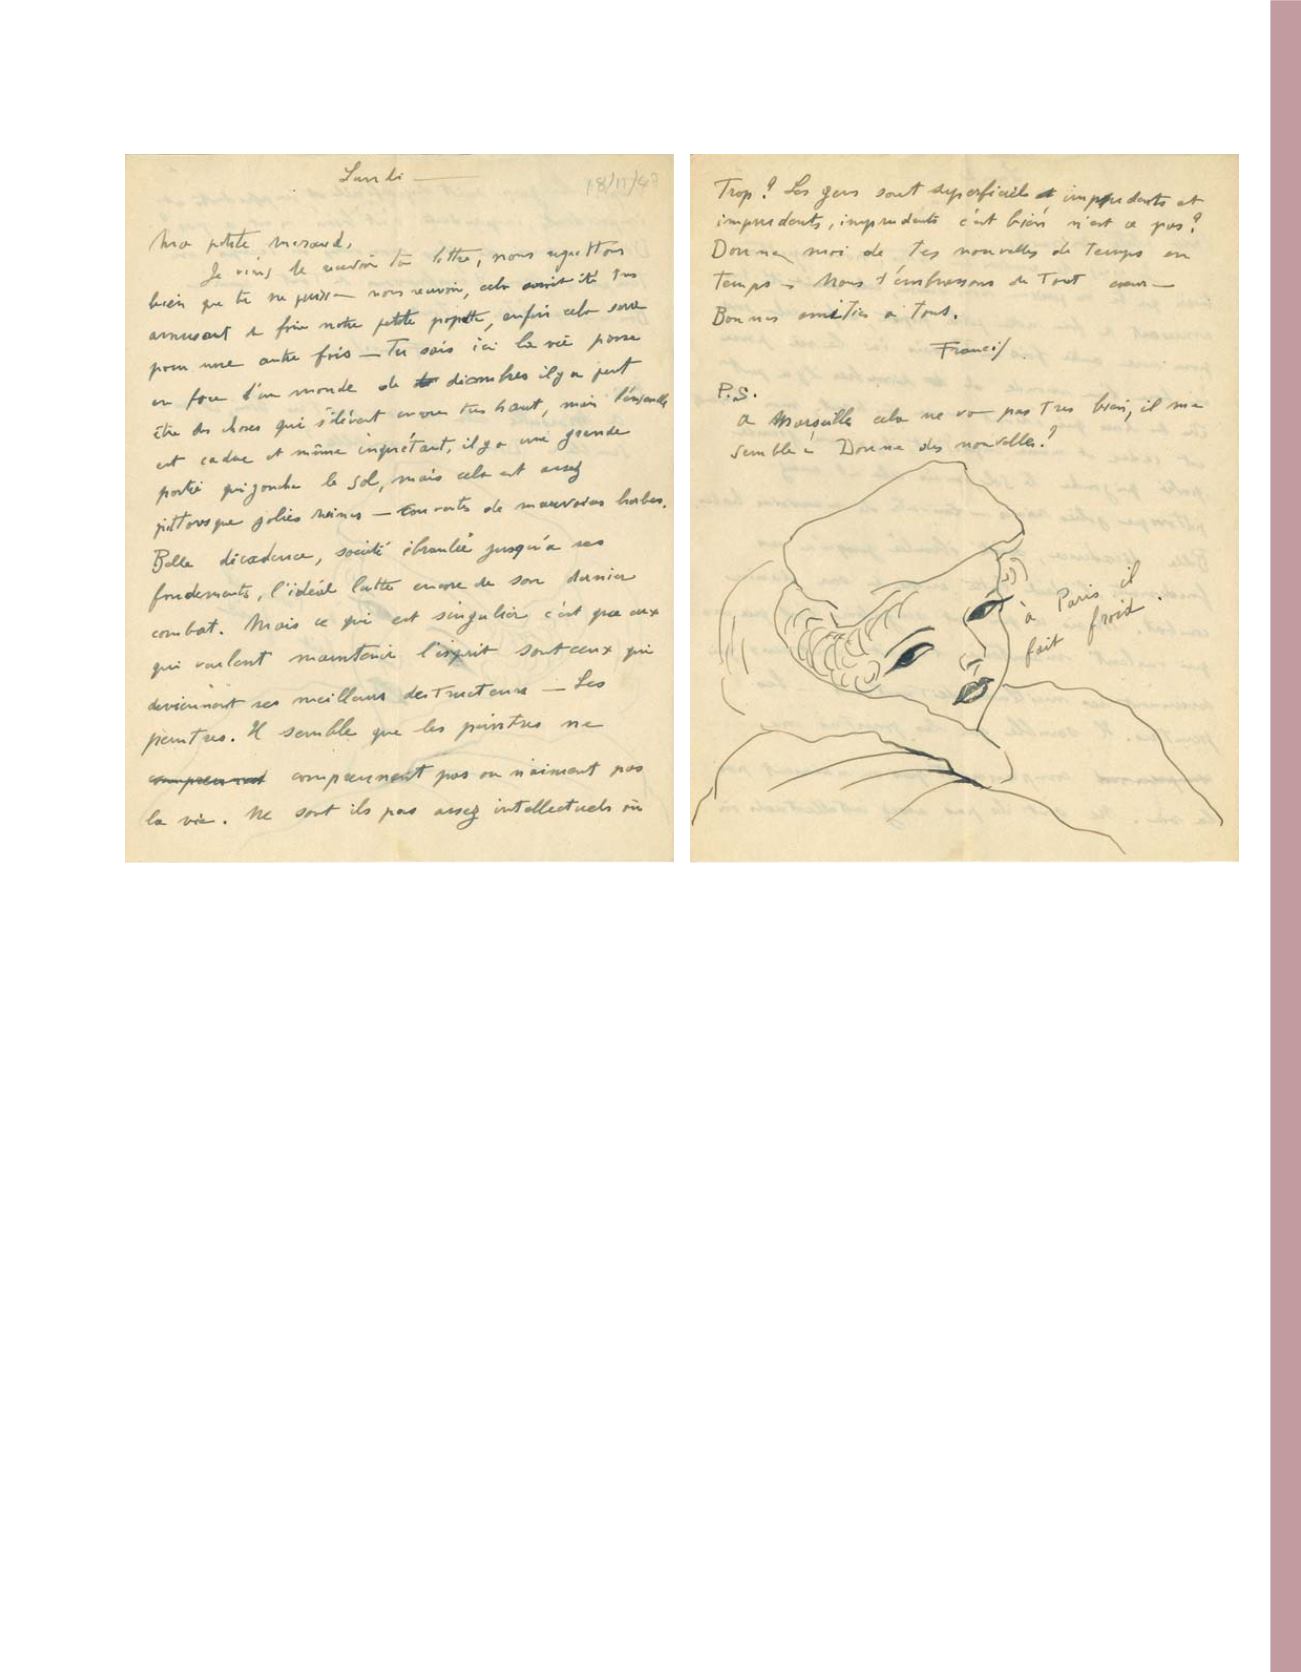 Lundi —
18/11/4
Ma petite
Je viens de recevoir ta lettre, nous regrettons
bien que tu ne puisse nous revoir, cela aurait été très
amusant de finir notre petite popotte, enfin cela sera
pour une autre fois — Tu sais ici la vie passe
en face d'un monde de décombres il y a peut
être des choses qui s'élèvent encore très haut, mais l'ensemble
est caduc et même inquiétant, il y a une grande
partie qui jonche le sol, mais cela est assez
pittoresque jolies ruines — couvertes de mauvaises herbes.
Belle décadence, société ébranlée jusqu'à ses
fondements, l'idéal lutte encore de son dernier
combat. Mais ce qui est singulier c'est que ceux
qui veulent maintenir l'esprit sont ceux qui
deviennent ses meilleurs destructeurs — Les
peintres. Il semble que les peintres ne
comprennent comprennent pas ou n'aiment pas
la vie. Ne sont ils pas assez intellectuels ou
Trop ? Les gens sont superficiels et imprudents et
imprudents, imprudents c'est bien n'est ce pas ?
Donne moi de tes nouvelles de temps en
temps — Nous t'embrassons de tout cœur —
Bonnes amitiés à tous.
Francis
P.S.
a Marseille cela ne va pas très bien, il me
semble ! Donne des nouvelles !
à Paris il
fait froid.